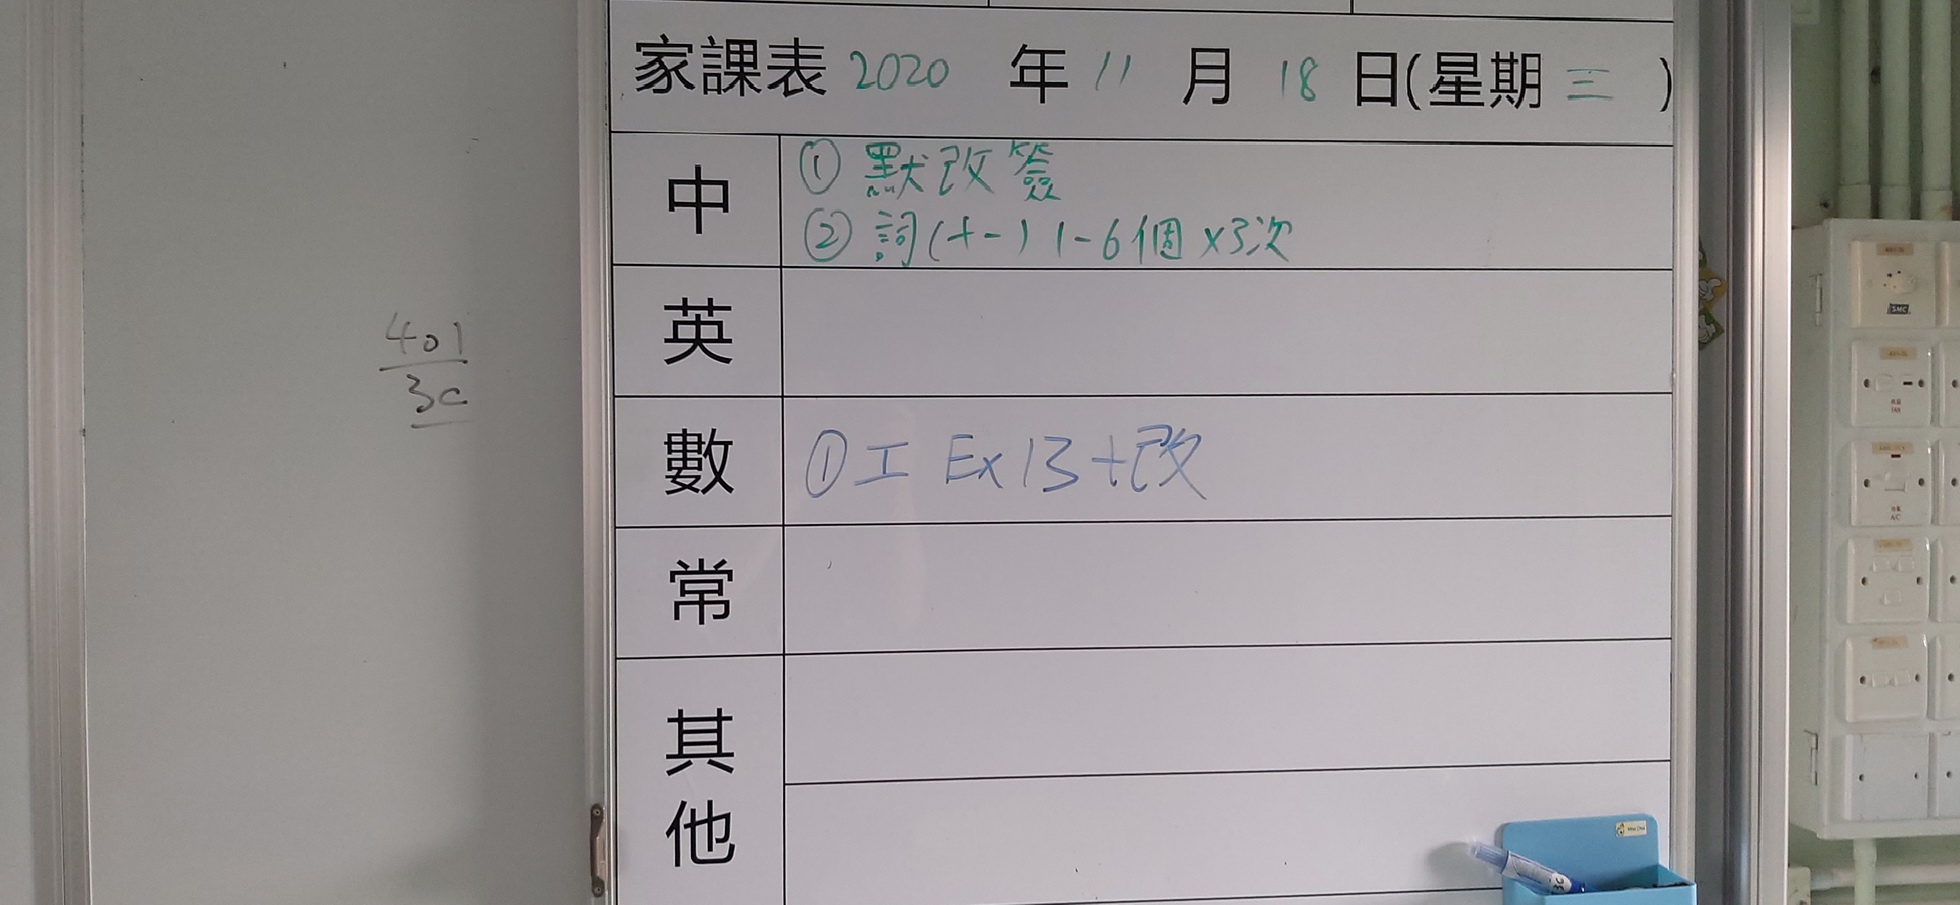 家課表 2020 年 11 月 18 日(星期 三 )
中
① 默改簽
② 詞(十一) 1-6個 x3次
英
數
① 工 Ex 13 + 改
常
其他
401
3C
SMC